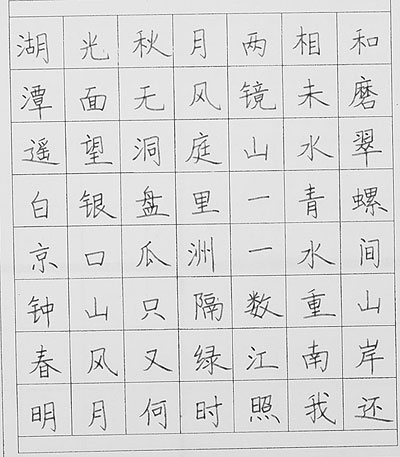 湖光秋月两相和
潭面无风镜未磨
遥望洞庭山水翠
白银盘里一青螺
京口瓜洲一水间
钟山只隔数重山
春风又绿江南岸
明月何时照我还